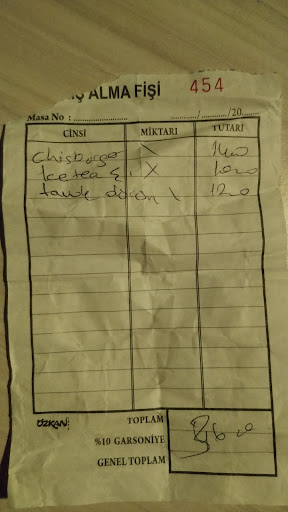 Ş ALMA FİŞİ 454
Masa No : ........................ ............/............/20......
CİNSİ MİKTARI TUTARI
chisborger \ 1400
Icetea Ş. X 1000
tavuk dönon \ 1200
ÖZKAN TOPLAM
%10 GARSONİYE
GENEL TOPLAM